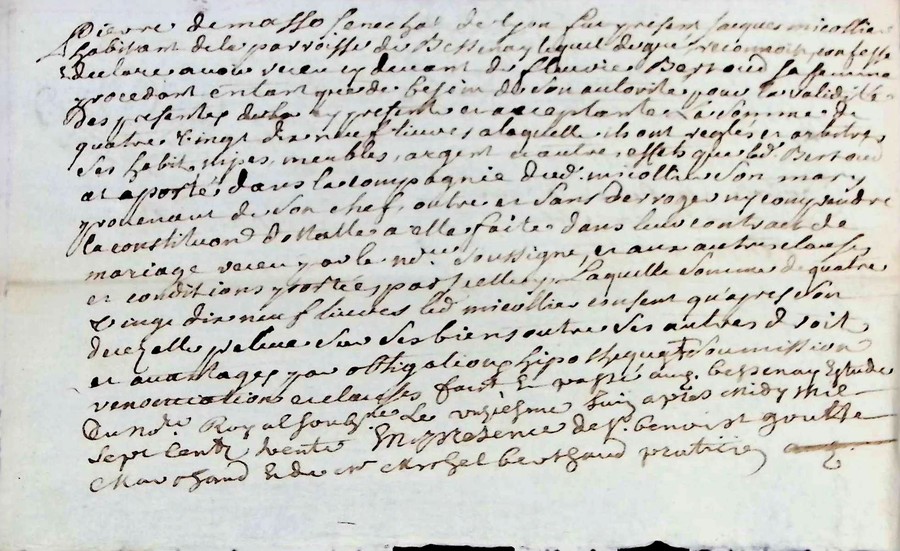 Pierre de masso senechal de Lyon fut present Jacques micollier
habitant de la parroisse de Bessenay lequel de gré reconnoit confesse
& declare avoir receu cy devant de fleurie Bertoud sa femme
procedant entant que de besoin de son autorité pour la validité
des presentes de luy presente et acceptante La somme de
quatre vingt dix neuf livres a laquelle ils ont reglés et arbitres
ses habits, nipes, meubles, argent et autres effets que lad. Bertoud
at aportés dans la compagnie dud. micollier son mary
provenant de son chef, outre et sans derroger ny comprendre
la constitution dottalle a elle faite dans leur contract de
mariage receu par le nore. soussigné, et aux autres clauses
et conditions portées par icelluy Laquelle somme de quatre
vingt dix neuf livres led micollier consent qu'apres son
deces elle preleve sur ses biens outre ses autres droit
et avantages par obligation hipotheque soumission
renonciation et clauses fait et passé aud. bessenay Etude
du nore. Royal soubsne. Le vingtieme Juin apres midy mil
sept Cents trente En presence de sr. benoist goutte
Marchand & de me Michel berthaud praticien